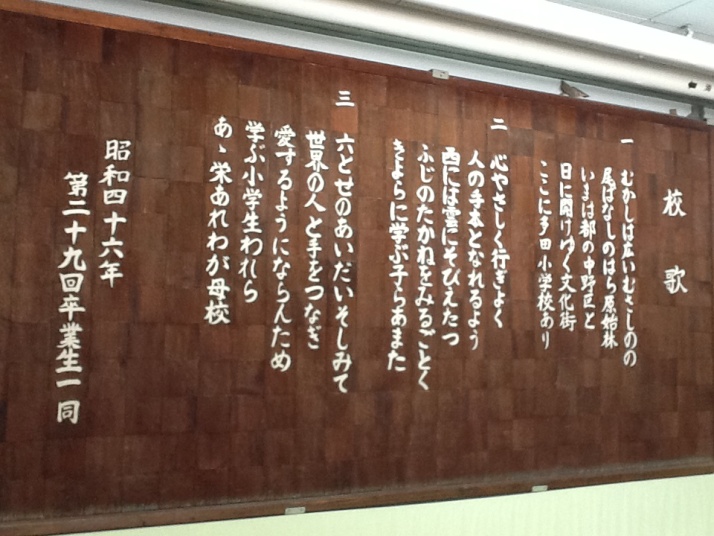 校歌
一 むかしは広いむさしのの
尾ばなしのはら原始林
いまは都の中野区と
日に開けゆく文化街
ここに多田小学校あり
二 心やさしく行きよく
人の手本となれるよう
西には雲にそびえたつ
ふじのたかねをみるごとく
きよらに学ぶ子らあまた
三 六とせのあいだいそしみて
世界の人と手をつなぎ
愛するようにならんため
学ぶ小学生われら
あゝ栄あれわが母校
昭和四十六年
第二十九回卒業生一同